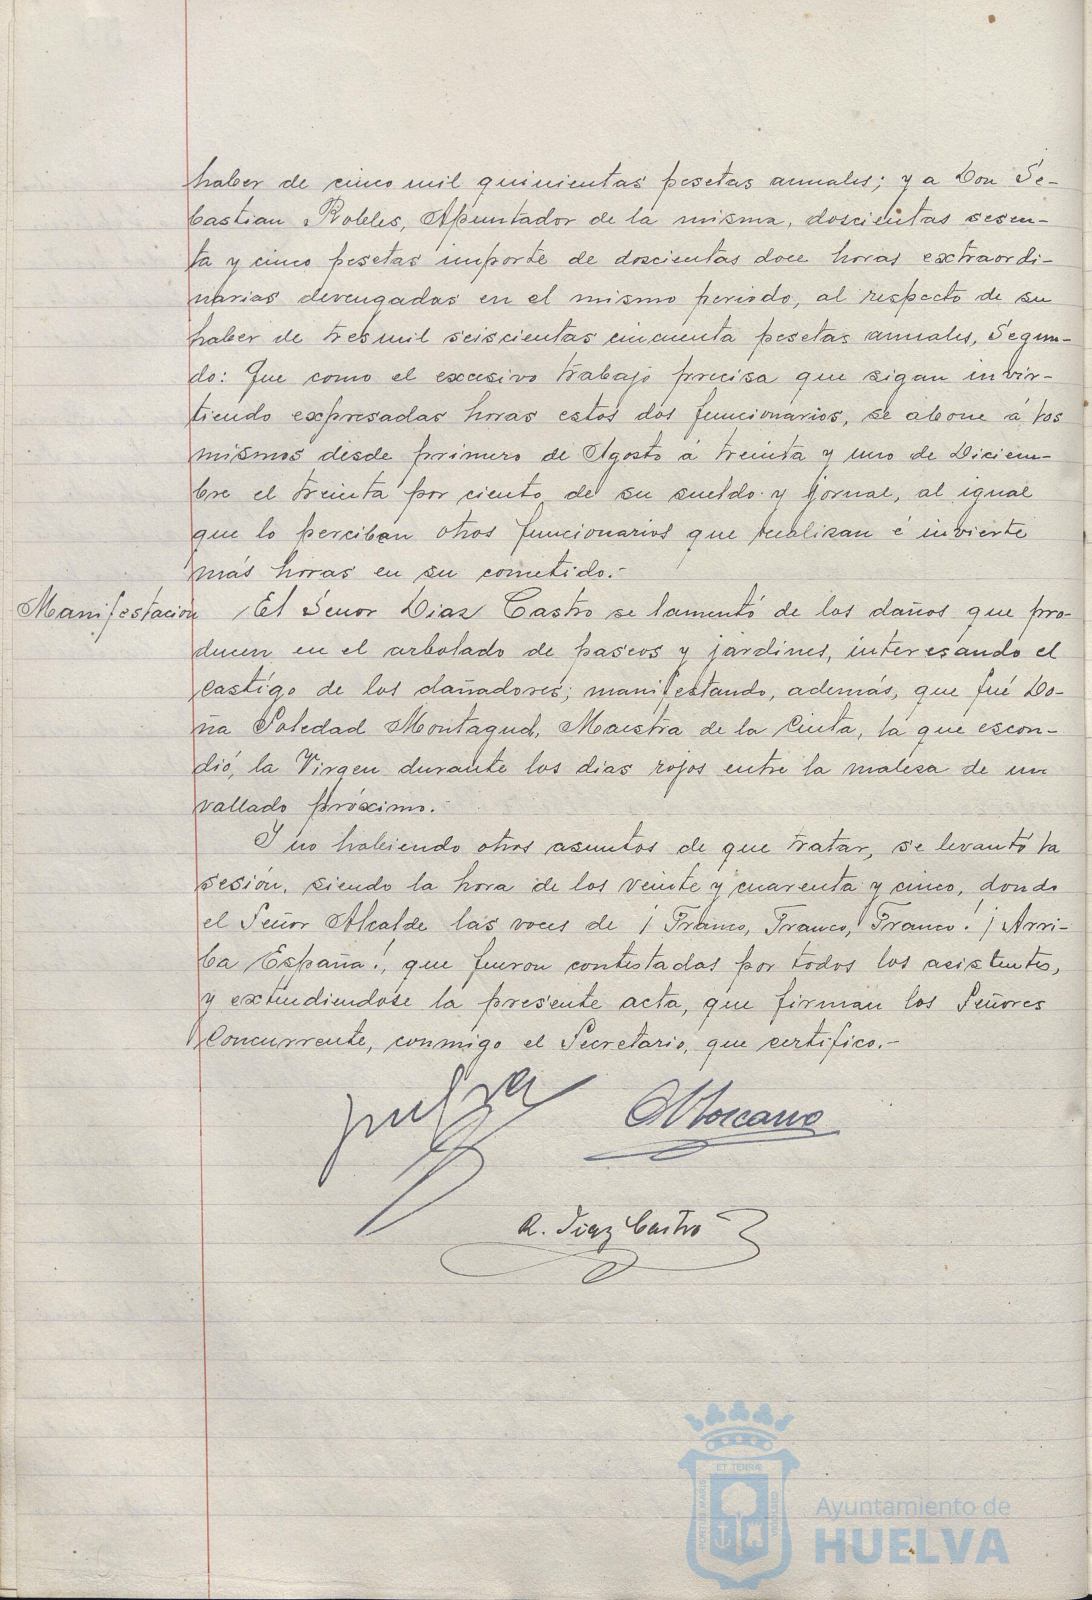 haber de cinco mil quinientas pesetas anuales; y a Don Se-
bastian Robles, Apuntador de la misma, doscientas sesen-
ta y cinco pesetas importe de doscientas doce horas extraordi-
narias devengadas en el mismo periodo, al respecto de su
haber de tres mil seiscientas cincuenta pesetas anuales. Segun-
do: Que como el excesivo trabajo precisa que sigan invir-
tiendo expresadas horas estos dos funcionarios, se abone á los
mismos desde primero de Agosto á treinta y uno de Diciem-
bre el treinta por ciento de su sueldo y jornal, al igual
que lo perciben otros funcionarios que realizan é invierte
más horas en su cometido.-
Manifestación El Señor Diaz Castro se lamentó de los daños que pro-
ducen en el arbolado de paseos y jardines, interesando el
castigo de los dañadores; manifestando, además, que fué Do-
ña Soledad Montagud, Maestra de la Cinta, la que escon-
dió, la Virgen durante los dias rojos entre la maleza de un
vallado próximo.-
Y no habiendo otros asuntos de que tratar, se levantó la
sesión, siendo la hora de los veinte y cuarenta y cinco, dando
el Señor Alcalde las voces de ¡Franco, Franco, Franco! ¡Arri-
ba España!, que fueron contestadas por todos los asistentes,
y extendiendose la presente acta, que firman los Señores
Concurrente, conmigo el Secretario, que certifico.-
Moscano
R. Diaz Castro
ET TERRÆ
PORTUS MARIS
CUSTODIA
Ayuntamiento de
HUELVA